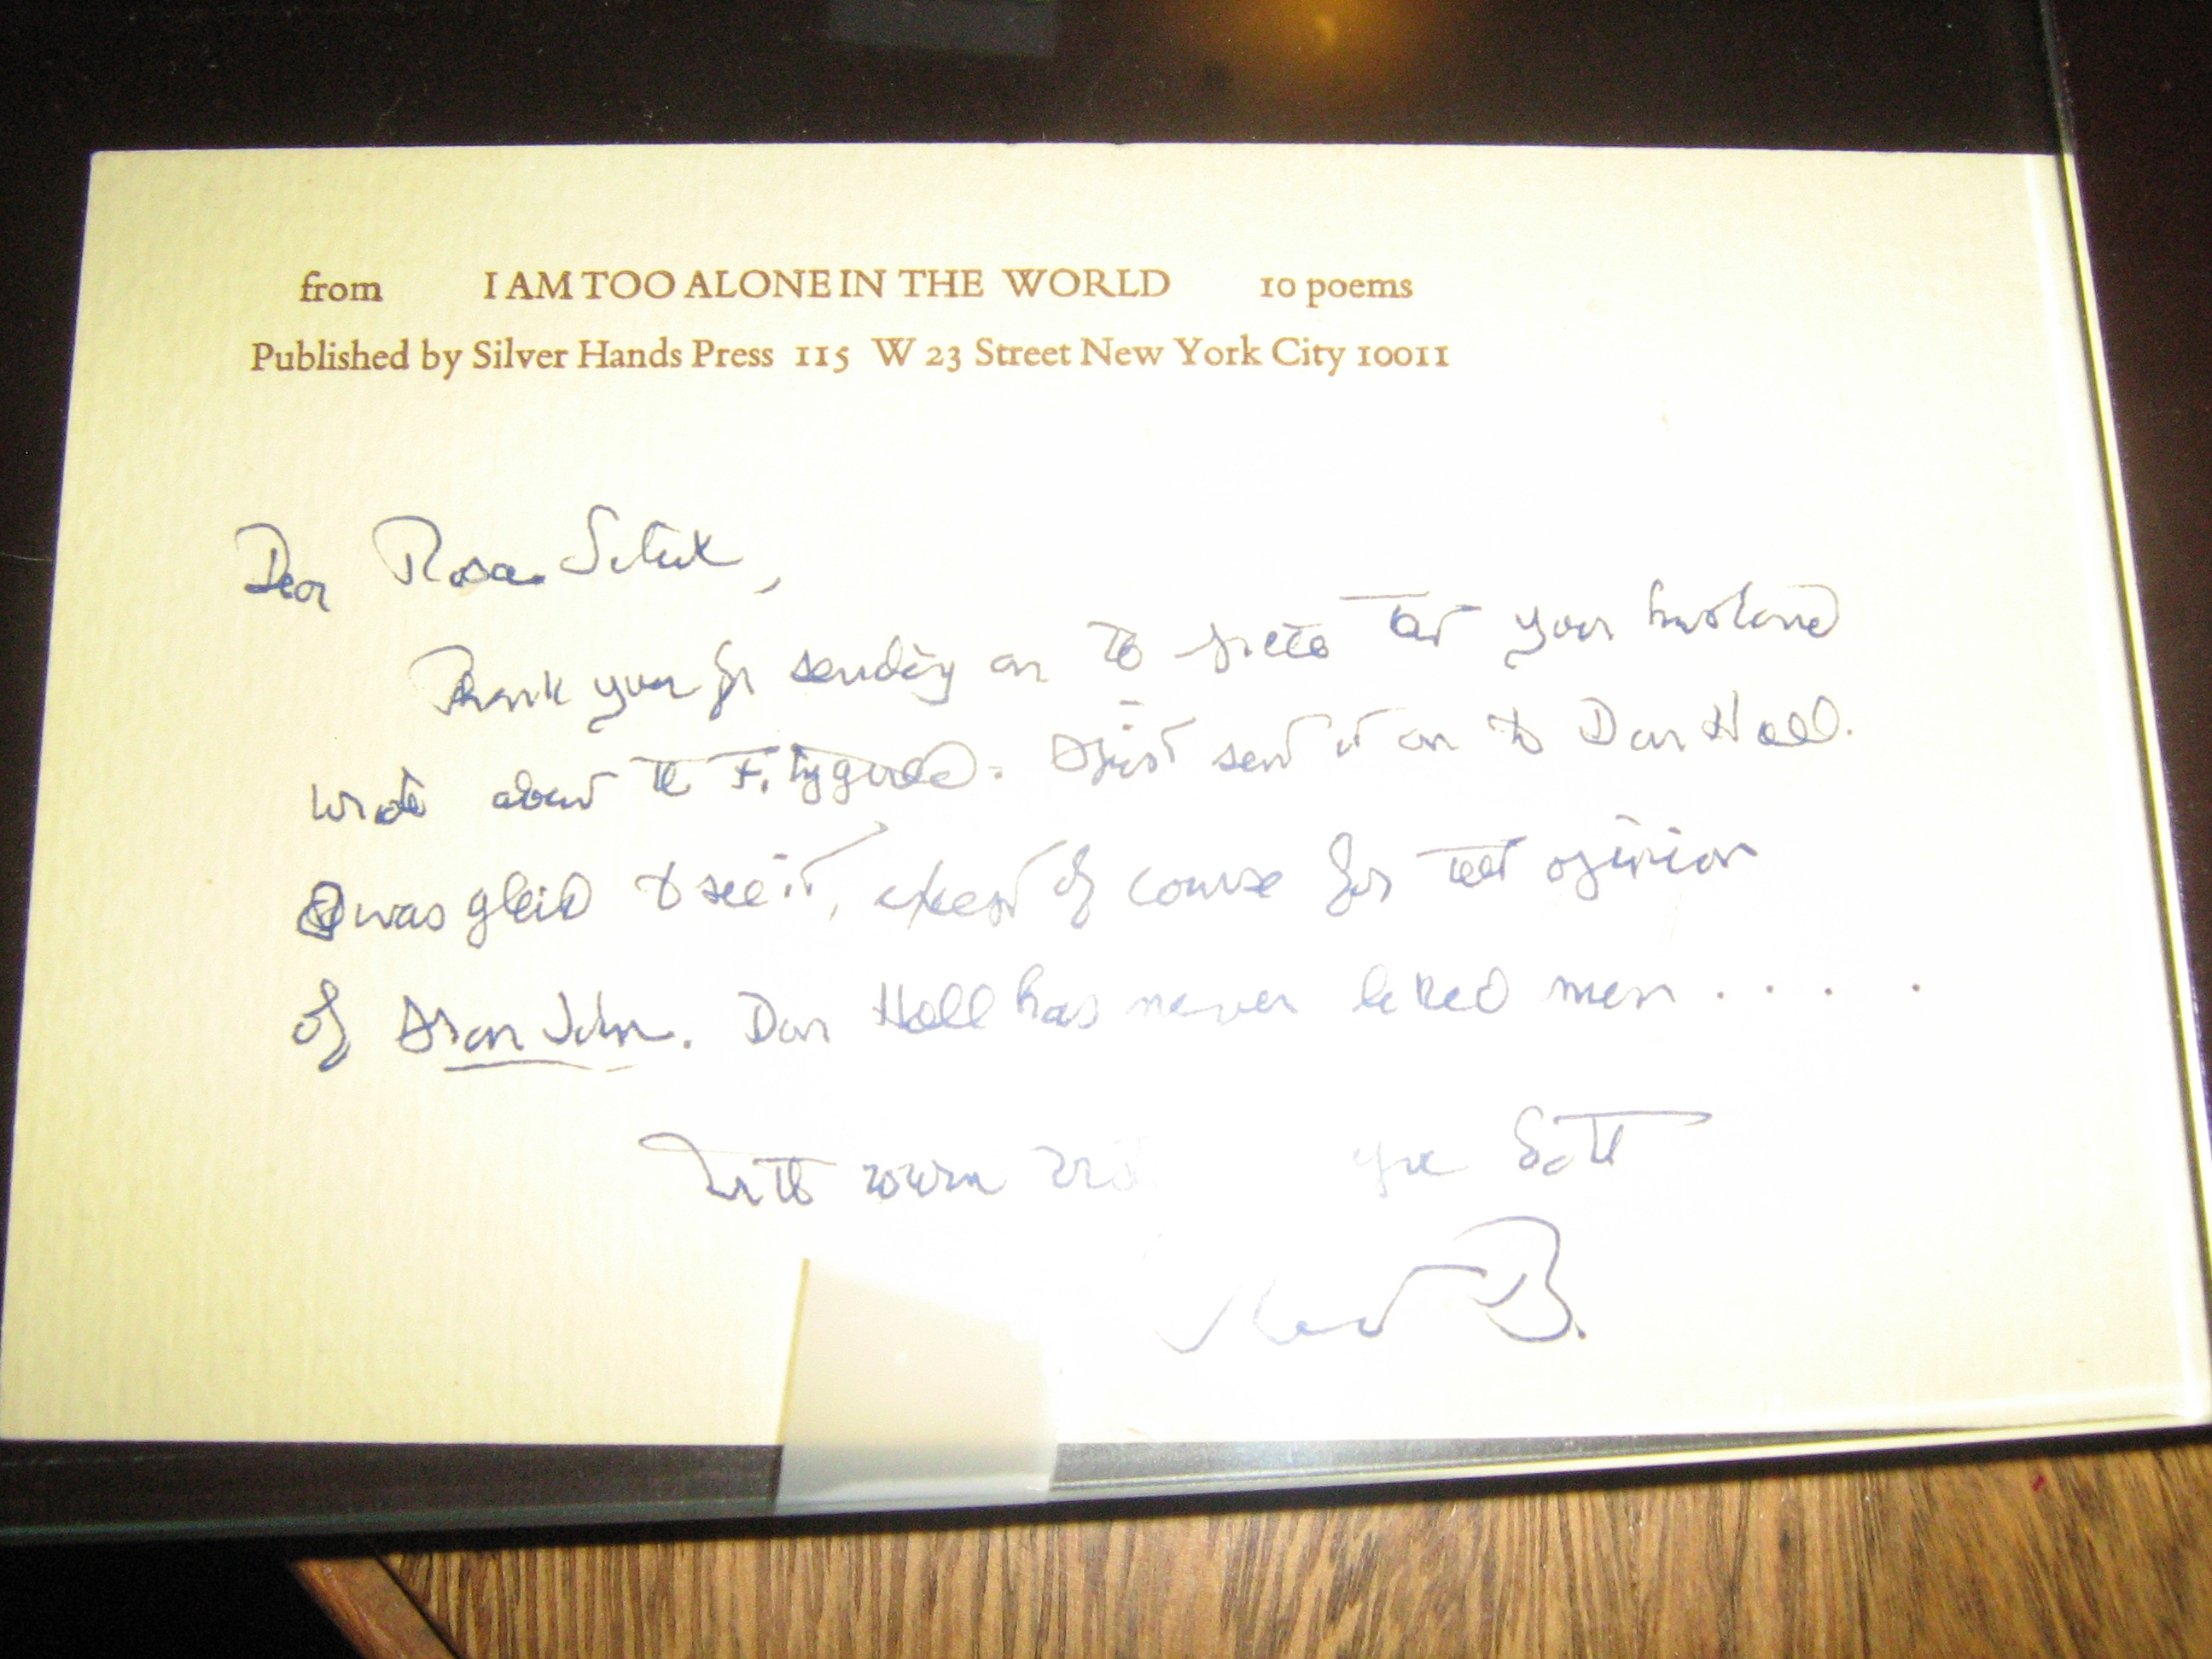 from I AM TOO ALONE IN THE WORLD 10 poems
Published by Silver Hands Press 115 W 23 Street New York City 10011
Dear Rosa
Thank you for sending on the that your husband
wrote about the I just sent it on to Don Hall.
I was glad to see it, except of course for that opinion
of Iron John. Don Hall has never liked men . . . .
with warm you both
B.